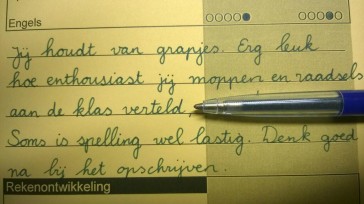 Engels
Jij houdt van grapjes. Erg leuk
hoe enthousiast jij moppen en raadsels
aan de klas verteld.
Soms is spelling wel lastig. Denk goed
na bij het opschrijven.
Rekenontwikkeling